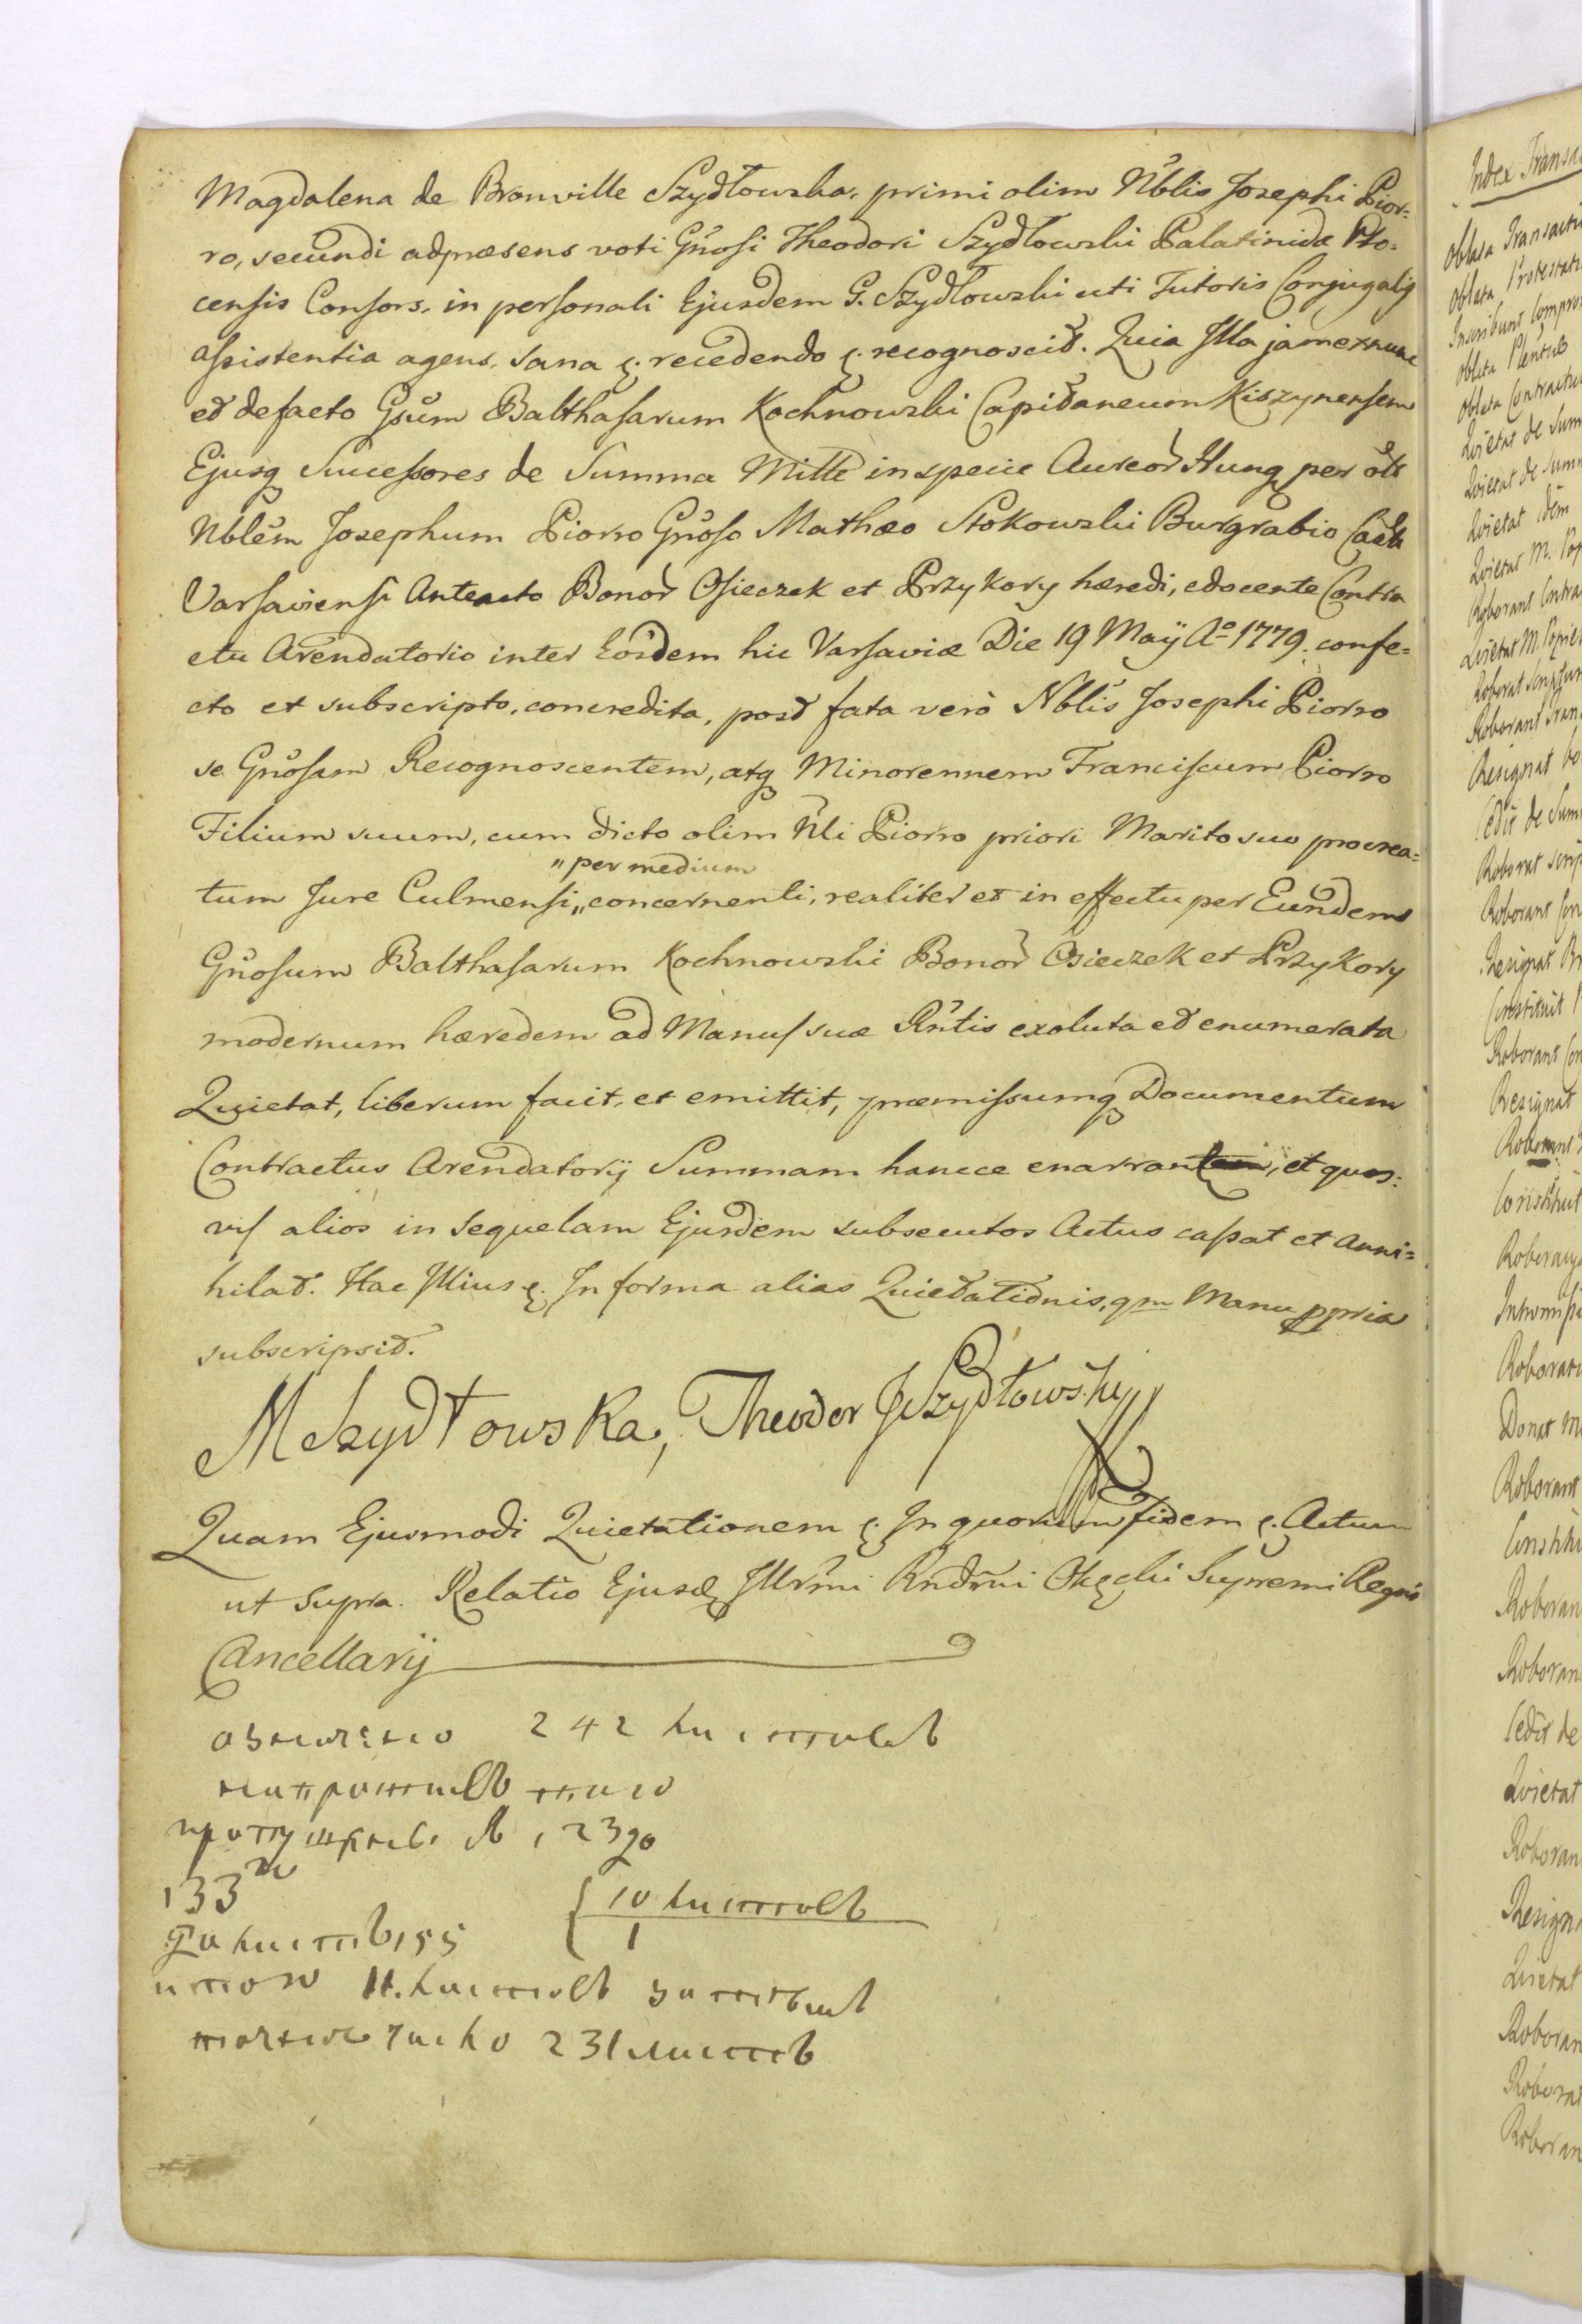 Magdalena de Bronville Szydłowska, primi olim Nblis Josephi Pior-
ro, secundi adpræsens voti Gnosi Theodori Szydłowski Palatinidæ Plo-
censis Consors, in personali Ejusdem G. Szydłowski uti Tutoris Conjugalis
assistentia agens, sana &. recedendo &. recognoscit. Quia Illa jam ex nunc
et defacto Gsum Balthasarum Kochnowski Capitaneum Kiszynensem
Ejusq Successores de Summa Mille in specie Aureor Hung per olt
Nblem Josephum Piorro Gnoso Mathæo Stokowski Burgrabio Castr
Varsaviensi Anteacto Bonor Osieczek et Przykory hæredi, edocente Contra
ctu Arendatorio inter Eosdem hic Varsaviæ Die 19 Maÿ Ao 1779. confe=
cto et subscripto, concredita, post fata verò Nblis Josephi Piorro
se Gnosam Recognoscentem, atq Minorennem Franciscum Piorro
Filium suum, cum dicto olim Nli Piorro priori Marito suo procrea=
" per medium
tum Jure Culmensi,, concernenti, realiter et in effectu per Eundem
Gnosum Balthasarum Kochnowski Bonor Osieczek et Przykory
modernum hæredem ad Manus suæ Rntis exoluta et enumerata
Quietat, liberum facit, et emittit, præmissumq Documentum
Contractus Arendatorij Summam hancce enarrantem, et quos:
vis alios in sequelam Ejusdem subsecutos Actus cassat et anni=
hilat. Hac Illius &. In forma alias Quietationis, qm Manu ppria
subscripsit.
M Szydłowska, Theodor Szydłowski
Quam Ejusmodi Quietationem &. In quorum fidem &. Actum
ut supra. Relatio Ejusd Illrmi Rndmi Okęcki Supremi Regni
Cancellarij
242 листовъ
напротивъ того
пропущены №
133
10 листовъ
1
листъ 155
11. листовъ затѣмъ
только 231 листъ
Index Transa
Oblata Transacti
Oblata Protestati
Inscribunt Compro
Oblata Plentiæ
Oblata Contractus
Quietat de Sum
Quietat de Summ
Quietat idem
Quietat M. Pop
Roborant Contra
Quietat M. Popiel
Roborat Scriptum
Roborant Tran
Resignat bo
Cedit de Sum
Roborat scrip
Roborant Con
Resignat Br
Constituit
Roborant Con
Resignat
Roborant
Constituit
Roborant
Intromissi
Roborat
Donat M
Roborant
Constitu
Roboran
Roboran
Cedit de
Quietat
Roboran
Resign
Quietat
Roboran
Robora
Roboran